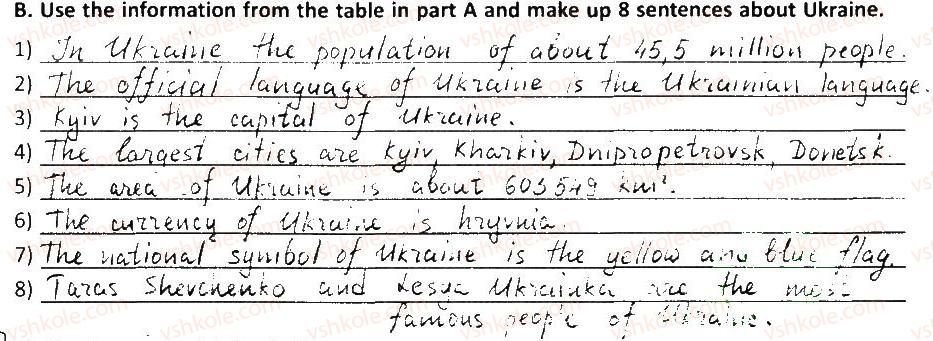 B. Use the information from the table in part A and make up 8 sentences about Ukraine.
1) In Ukraine the population of about 45,5 million people.
2) The official language of Ukraine is the Ukrainian language.
3) Kyiv is the capital of Ukraine.
4) The largest cities are Kyiv, Kharkiv, Dnipropetrovsk, Donetsk.
5) The area of Ukraine is about 603 549 km².
6) The currency of Ukraine is hryvnia.
7) The national symbol of Ukraine is the yellow and blue flag.
8) Taras Shevchenko and Lesya Ukrainka are the most
famous people of Ukraine.